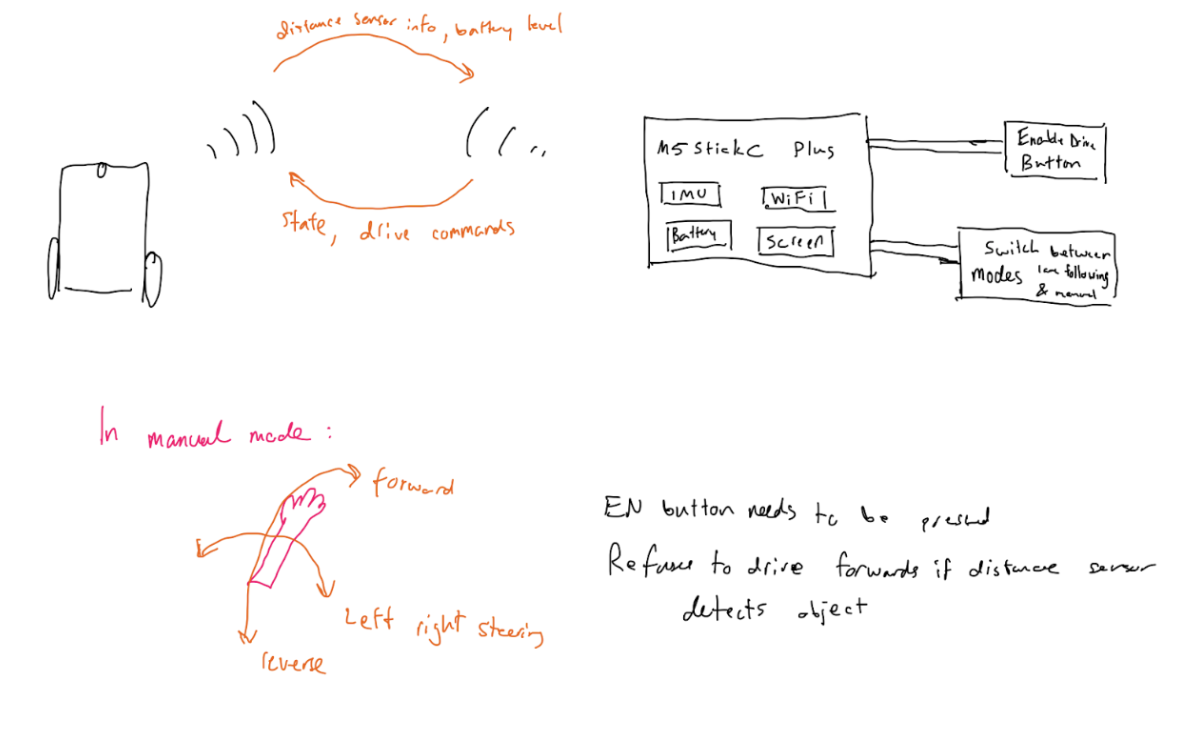 distance sensor info, battery level
State, drive commands
M5 StickC Plus
IMU
WiFi
Battery
Screen
Enable Drive
Button
Switch between
modes line following
& manual
In manual mode:
forward
Left right steering
reverse
EN button needs to be pressed
Refuses to drive forwards if distance sensor
detects object